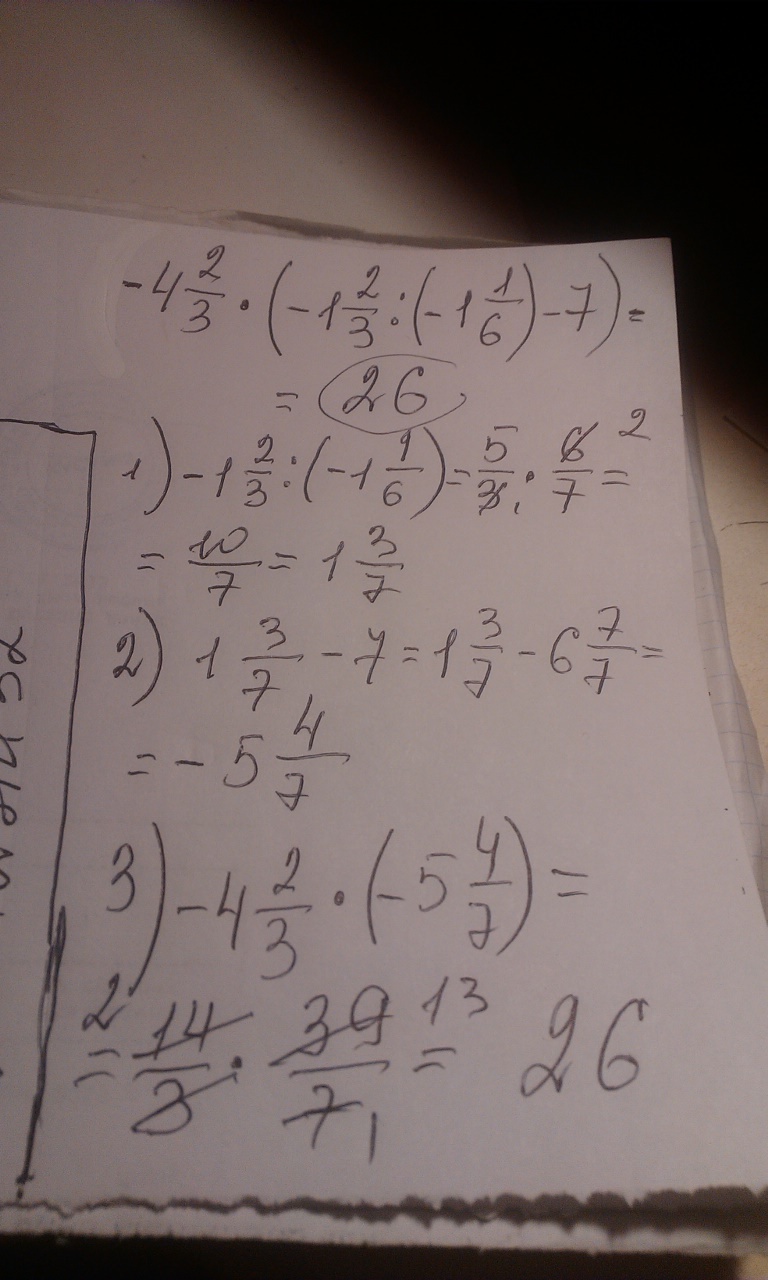 -4 2/3 · (-1 2/3 : (-1 1/6) - 7) =
= 26
1) -1 2/3 : (-1 1/6) = 5/3 1 · 6/7 = 2
= 10/7 = 1 3/7
2) 1 3/7 - 7 = 1 3/7 - 6 7/7 =
= - 5 4/7
3) -4 2/3 · (-5 4/7) =
= 2 14/3 · 39/7 1 = 13 26